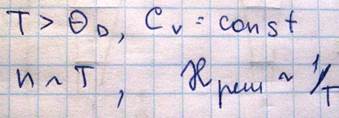 T > Θ_D, C_v = const
n ~ T, ϰ_реш ~ 1/T